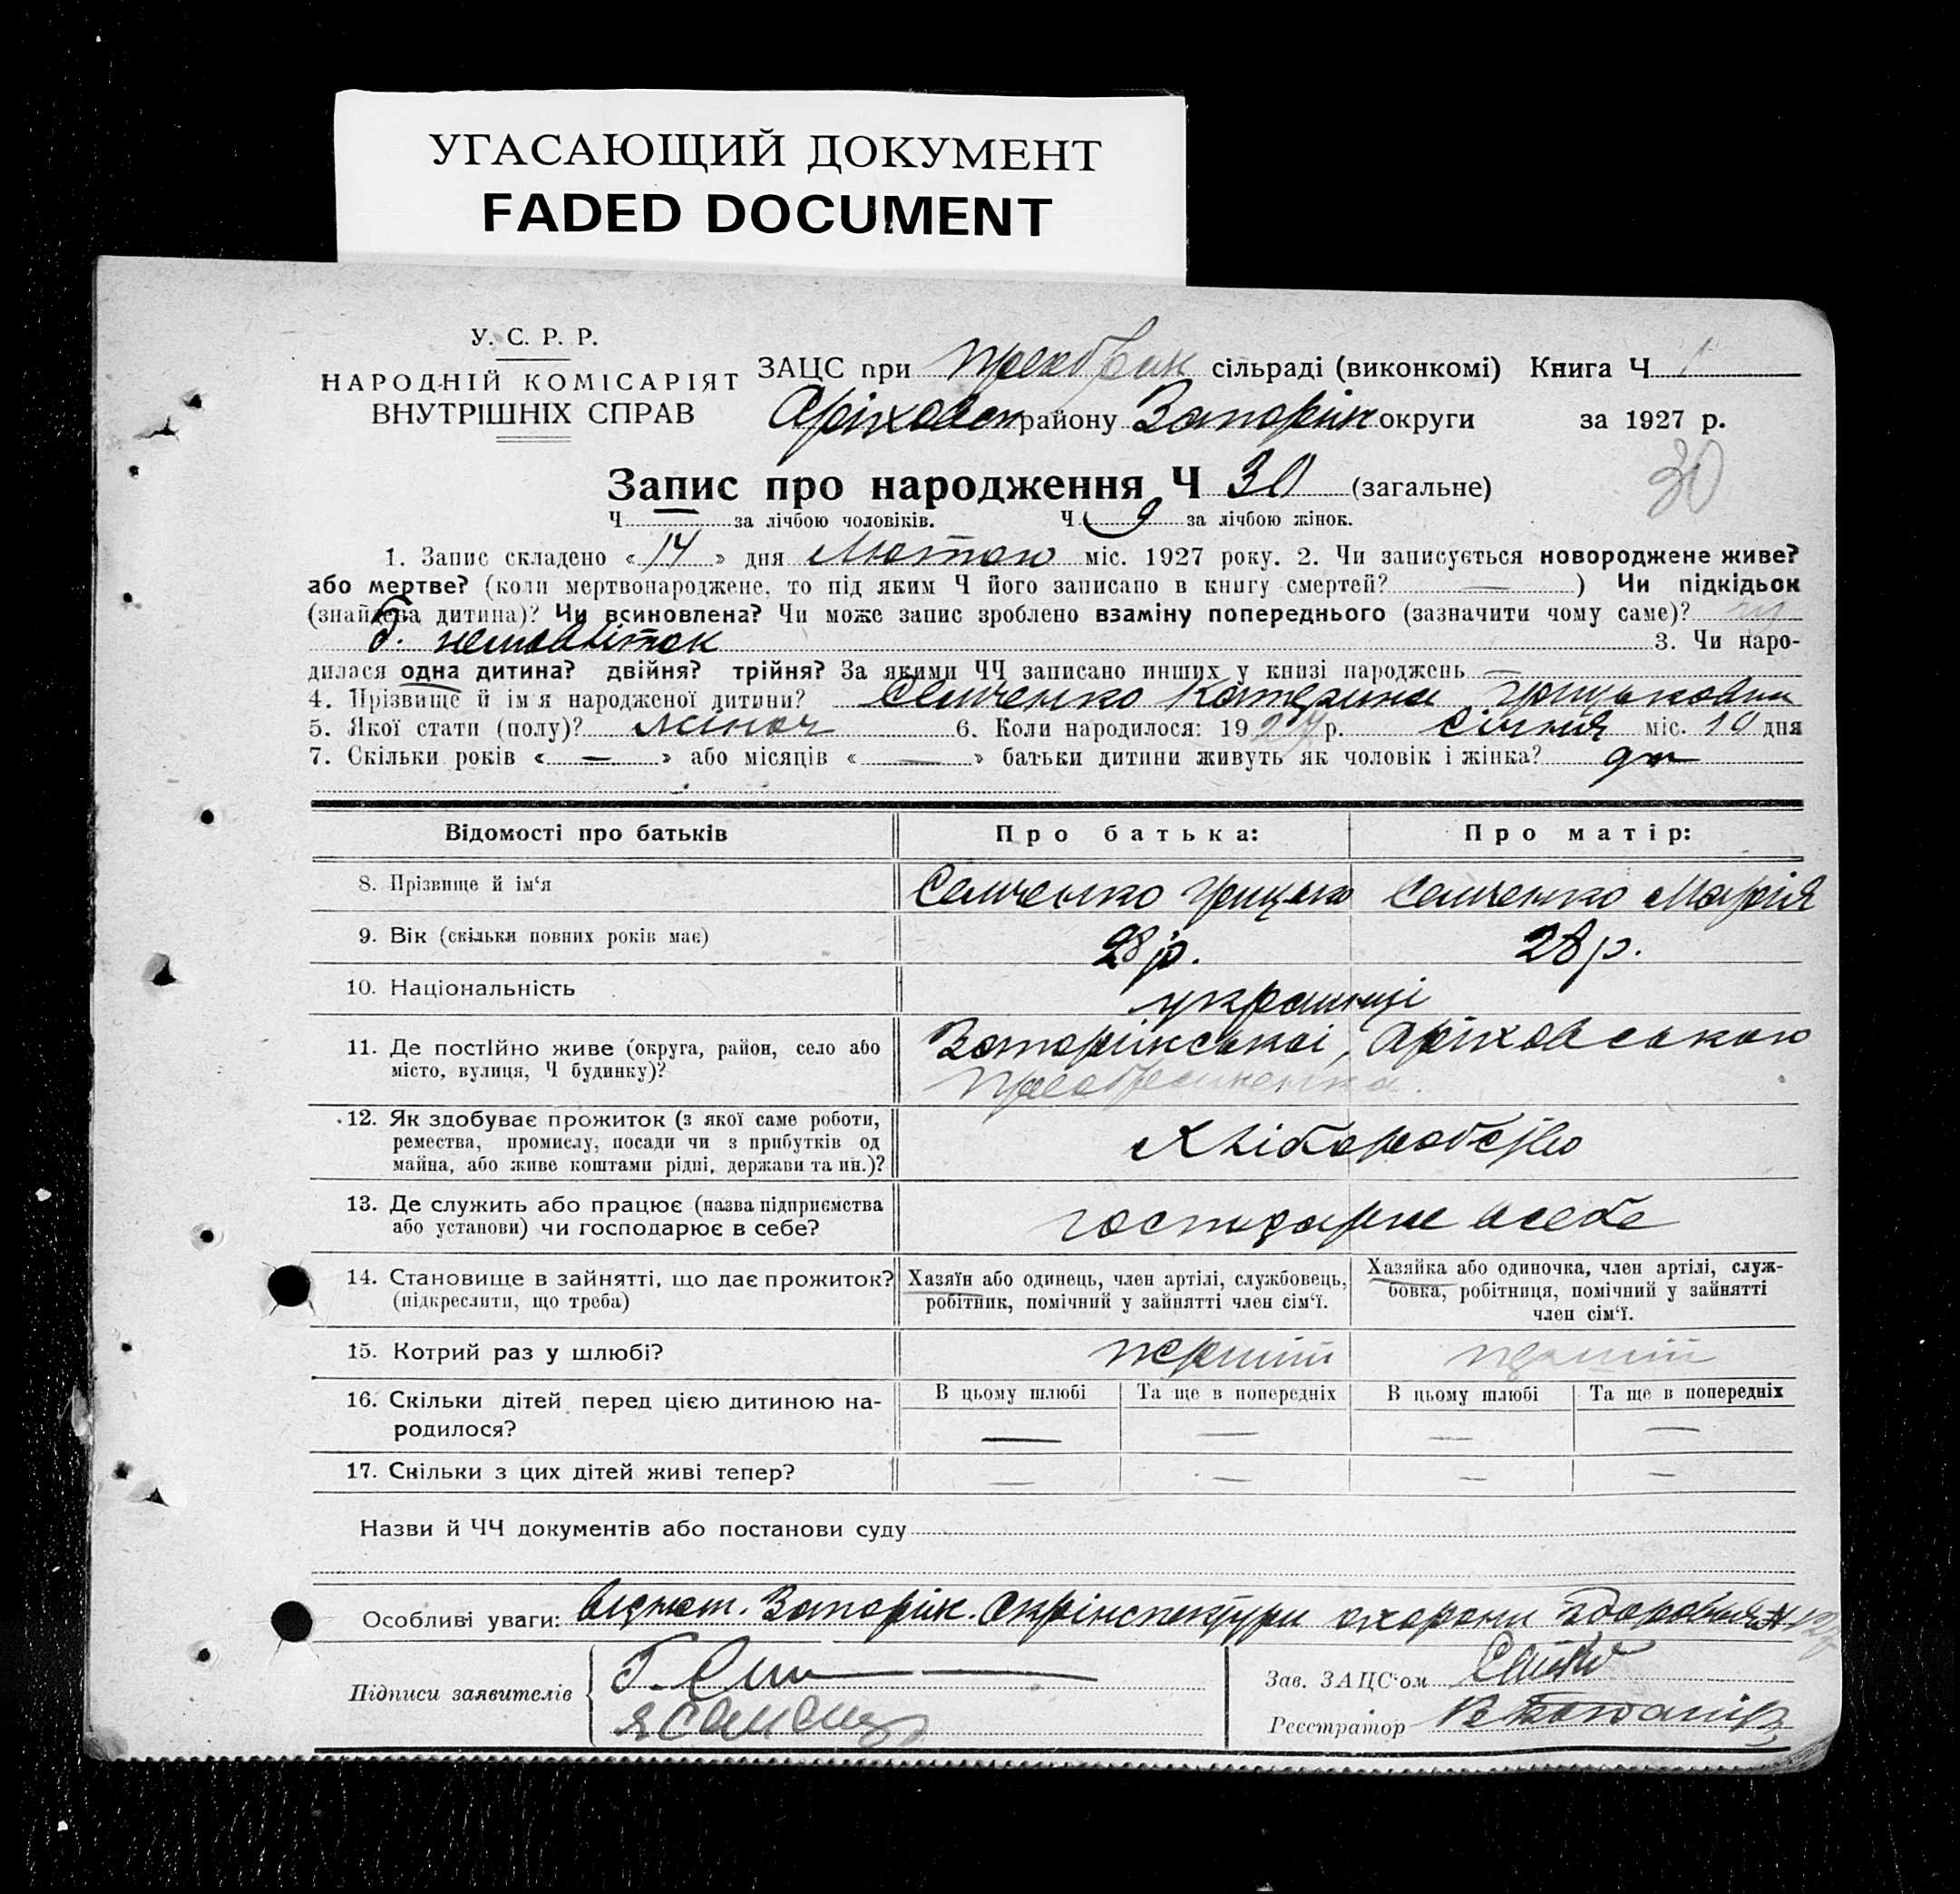 УГАСАЮЩИЙ ДОКУМЕНТ
FADED DOCUMENT
У. С. Р. Р.
НАРОДНІЙ КОМІСАРІЯТ
ВНУТРІШНІХ СПРАВ
ЗАЦС при Преображ сільраді (виконкомі) Книга Ч 1
Оріховськ району Запоріж округи за 1927 р.
30
Запис про народження Ч 30 (загальне)
Ч за лічбою чоловіків. Ч 9 за лічбою жінок.
1. Запис складено « 14 » дня Лютого міс. 1927 року. 2. Чи записується новороджене живе?
або мертве? (коли мертвонароджене, то під яким Ч його записано в книгу смертей? — ) Чи підкідьок
(знайдена дитина)? Чи всиновлена? Чи може запис зроблено взаміну попереднього (зазначити чому саме)?
3. Чи наро-
дилася одна дитина? двійня? трійня? За якими ЧЧ записано инших у книзі народжень —
4. Прізвище й ім'я народженої дитини? Семченко Катерина Грицьковна
5. Якої стати (полу)? жіноч 6. Коли народилося: 1927 р. Січня міс. 10 дня
7. Скільки років « — » або місяців « — » батьки дитини живуть як чоловік і жінка?
Відомості про батьків Про батька: Про матір:
8. Прізвище й ім'я Семченко Грицько Семченко Марія
9. Вік (скільки повних років має) 28 р. 28 р.
10. Національність українці
11. Де постійно живе (округа, район, село або
місто, вулиця, Ч будинку)?
Запоріжської, Оріховського
Преображенка.
12. Як здобуває прожиток (з якої саме роботи,
ремества, промислу, посади чи з прибутків од
майна, або живе коштами рідні, держави та ин.)?
Хліборобство
13. Де служить або працює (назва підприємства
або установи) чи господарює в себе?
господарює в себе
14. Становище в зайнятті, що дає прожиток?
(підкреслити, що треба)
Хазяїн або одинець, член артілі, службовець,
робітник, помічний у зайнятті член сім'ї.
Хазяйка або одиночка, член артілі, служ-
бовка, робітниця, помічний у зайнятті
член сім'ї.
15. Котрий раз у шлюбі? перший перший
16. Скільки дітей перед цією дитиною на-
родилося?
В цьому шлюбі Та ще в попередніх В цьому шлюбі Та ще в попередніх
— — — —
17. Скільки з цих дітей живі тепер? — — — —
Назви й ЧЧ документів або постанови суду
Особливі уваги: Запоріж. Окрінспектури охорони здоровля
Підписи заявителів
Зав. ЗАЦС'ом
Реєстратор